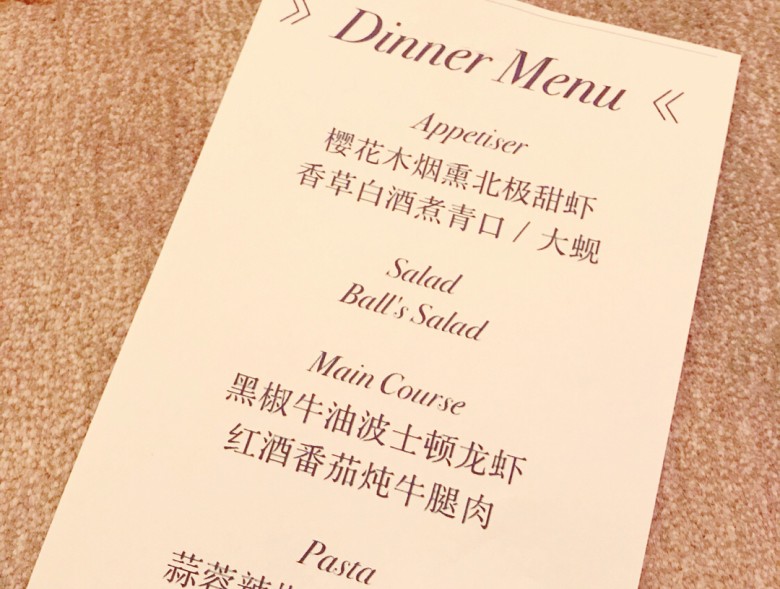 » Dinner Menu «
Appetiser
樱花木烟熏北极甜虾
香草白酒煮青口 / 大蚬
Salad
Ball's Salad
Main Course
黑椒牛油波士顿龙虾
红酒番茄炖牛腿肉
Pasta
蒜蓉辣